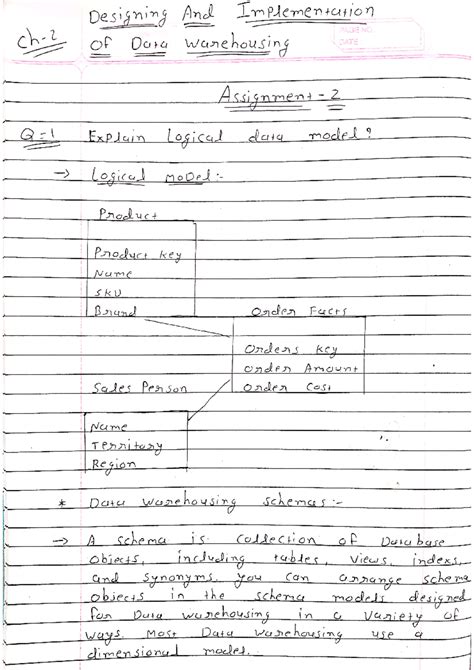 Designing And Implementation
Ch-2 Of Data Warehousing
PAGE NO.
DATE
Assignment - 2
Q-1 Explain Logical data model?
→ Logical MoDel:-
Product
Product key
Name
SKU
Brand
Order Facts
Orders key
Order Amount
Sales Person
Order Cost
Name
Territory
Region
* Data warehousing schemas:-
→ A schema is collection of Database
objects, including tables, views, indexes,
and synonyms. you can arrange schema
objects in the schema models designed
for Data warehousing in a variety of
ways. Most Data warehousing use a
dimensional model.